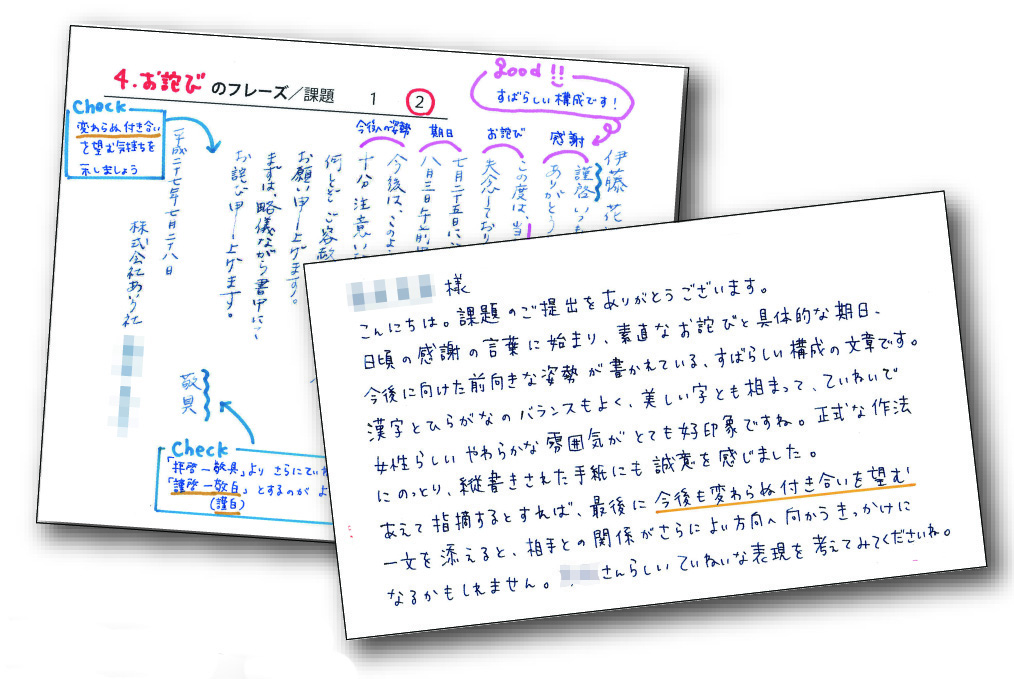 4.お詫びのフレーズ／課題 1 2
good!!
すばらしい構成です!
Check
変わらぬ付き合い
を望む気持ちを
示しましょう
感謝
お詫び
期日
今後への姿勢
伊藤 花
謹啓 いつも
ありがとう
この度は、当
失念しており
七月二十五日に
八月三日午前
今後は、このよ
十分注意いた
何とぞご容赦
お願い申し上げます。
まずは、略儀ながら書中にて
お詫び申し上げます。
敬具
平成二十七年七月二十八日
株式会社あり社
Check
「拝啓ー敬具」より さらにてい
「謹啓ー敬白」とするのが よ
(謹白)
様
こんにちは。課題のご提出をありがとうございます。
日頃の感謝の言葉に始まり、素直なお詫びと具体的な期日、
今後に向けた前向きな姿勢が書かれている、すばらしい構成の文章です。
漢字とひらがなのバランスもよく、美しい字とも相まって、ていねいで
女性らしいやわらかな雰囲気がとても好印象ですね。正式な作法
にのっとり、縦書きされた手紙にも誠意を感じました。
あえて指摘するとすれば、最後に今後も変わらぬ付き合いを望む
一文を添えると、相手との関係がさらによい方向へ向かうきっかけに
なるかもしれません。さんらしいていねいな表現を考えてみてくださいね。